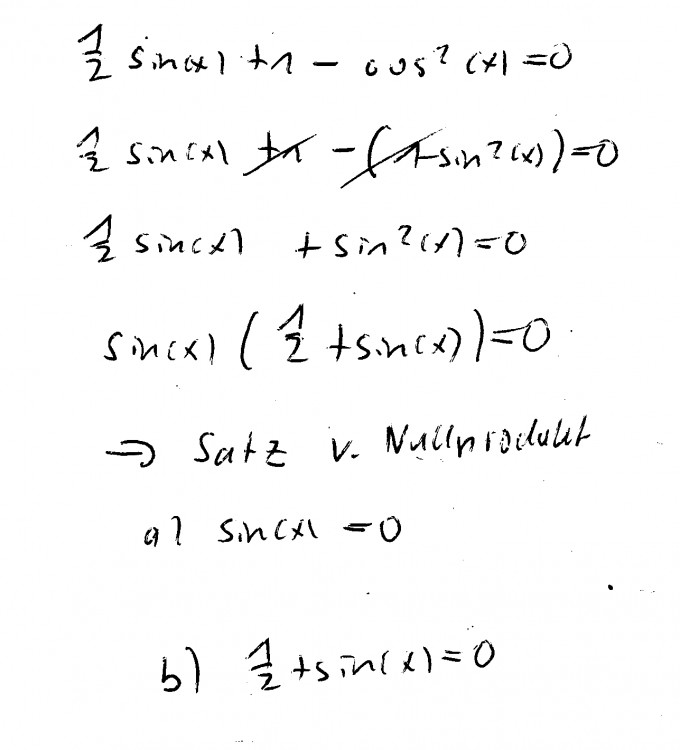 ½ sin(x) + 1 - cos²(x) = 0
½ sin(x) + 1 - (1 - sin²(x)) = 0
½ sin(x) + sin²(x) = 0
sin(x) (½ + sin(x)) = 0
⇒ Satz v. Nullprodukt
a) sin(x) = 0
b) ½ + sin(x) = 0